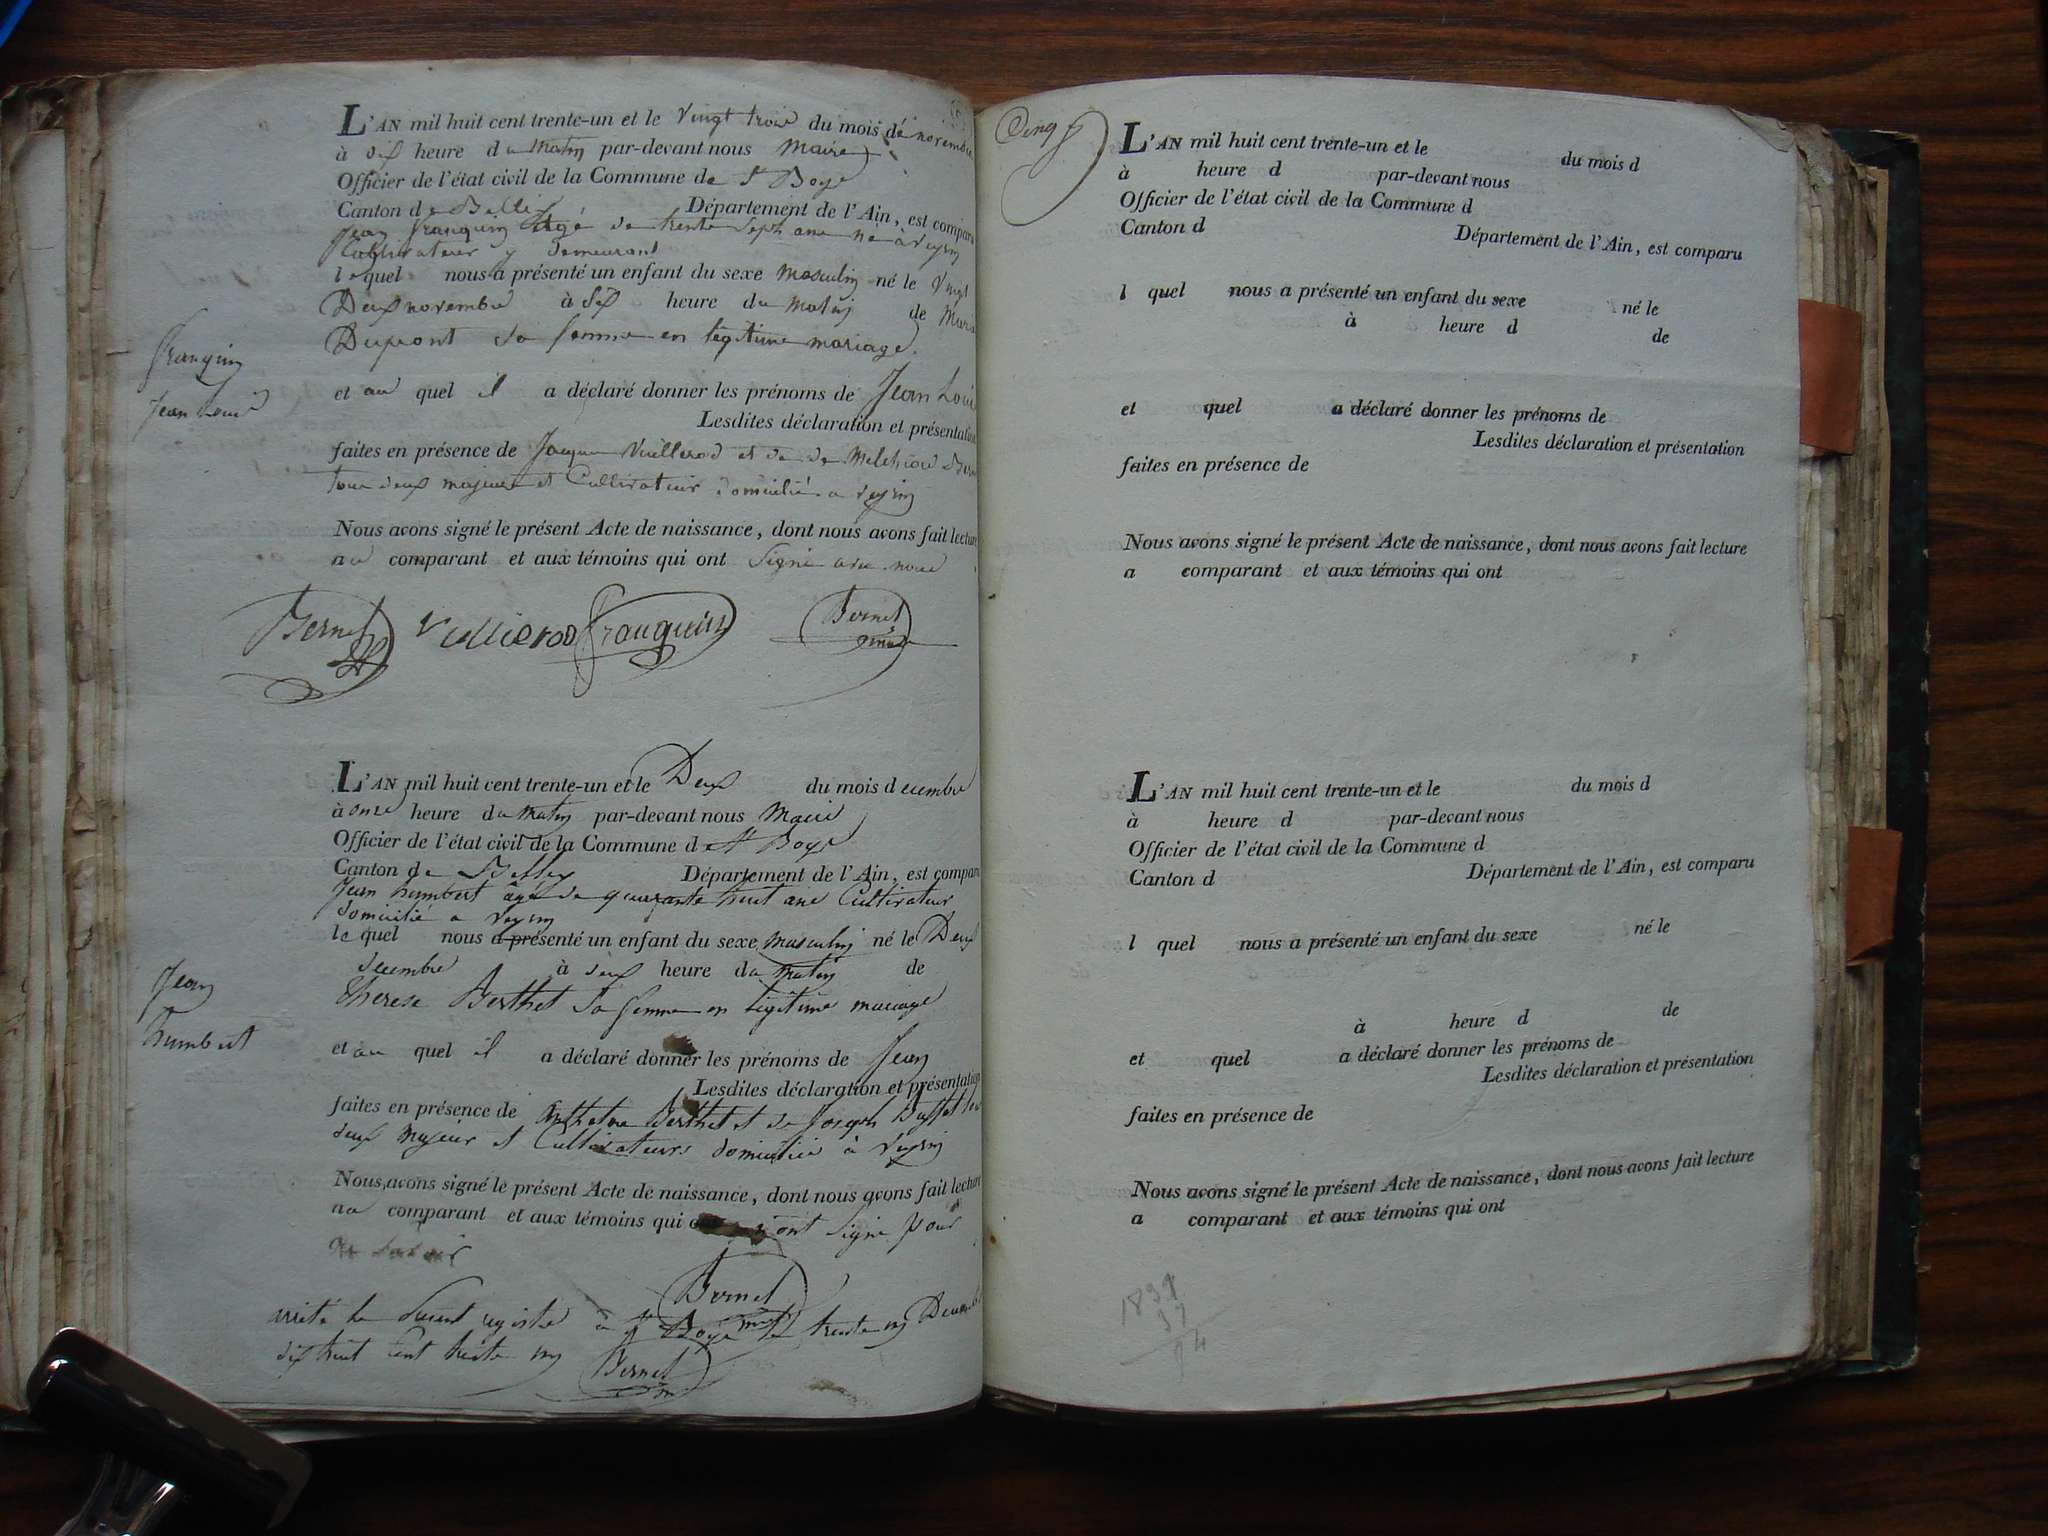 L'AN mil huit cent trente-un et le vingt trois du mois de novembre
à dix heure du matin par-devant nous Maire
Officier de l'état civil de la Commune de St Boys
Canton de Belley Département de l'Ain, est comparu
Jean franquin agé de trente sept ans né à veyrin
Cultivateur y demeurant
lequel nous a présenté un enfant du sexe masculin né le vingt
Deux novembre à six heure du matin de Marie
Dupront sa femme en légitime mariage.
franquin
Jean Louis
et au quel il a déclaré donner les prénoms de Jean Louis
Lesdites déclaration et présentation
faites en présence de Jacque Vuillerod et de de Melchior
tous deux majeurs et Cultivateur domicilié a veyrin
Nous avons signé le présent Acte de naissance, dont nous avons fait lecture
au comparant et aux témoins qui ont signé avec nous
Bernet Vuillerod franquin Bernet
maire
L'AN mil huit cent trente-un et le Deux du mois decembre
à onze heure du matin par-devant nous Maire
Officier de l'état civil de la Commune de St Boys
Canton de Belley Département de l'Ain, est comparu
Jean humbert agé de quarante huit ans Cultivateur
domicilié a veyrin
le quel nous a présenté un enfant du sexe masculin né le Deux
decembre à deux heure du matin de
Therese Berthet sa femme en légitime mariage
Jean
humbert
et au quel il a déclaré donner les prénoms de Jean
Lesdites déclaration et présentation
faites en présence de Anthelme Berthet et de Joseph
deux majeur et Cultivateurs domicilié à veyrin
Nous avons signé le présent Acte de naissance, dont nous avons fait lecture
au comparant et aux témoins qui ont signé pour
Bernet
arrêté le présent registre à St Boys le trente un Decembre
dix huit cent trente un Bernet
L'AN mil huit cent trente-un et le du mois d
à heure d par-devant nous
Officier de l'état civil de la Commune d
Canton d Département de l'Ain, est comparu
l quel nous a présenté un enfant du sexe né le
à heure d de
et quel a déclaré donner les prénoms de
Lesdites déclaration et présentation
faites en présence de
Nous avons signé le présent Acte de naissance, dont nous avons fait lecture
a comparant et aux témoins qui ont
L'AN mil huit cent trente-un et le du mois d
à heure d par-devant nous
Officier de l'état civil de la Commune d
Canton d Département de l'Ain, est comparu
l quel nous a présenté un enfant du sexe né le
à heure d de
et quel a déclaré donner les prénoms de
Lesdites déclaration et présentation
faites en présence de
Nous avons signé le présent Acte de naissance, dont nous avons fait lecture
a comparant et aux témoins qui ont
1831
37